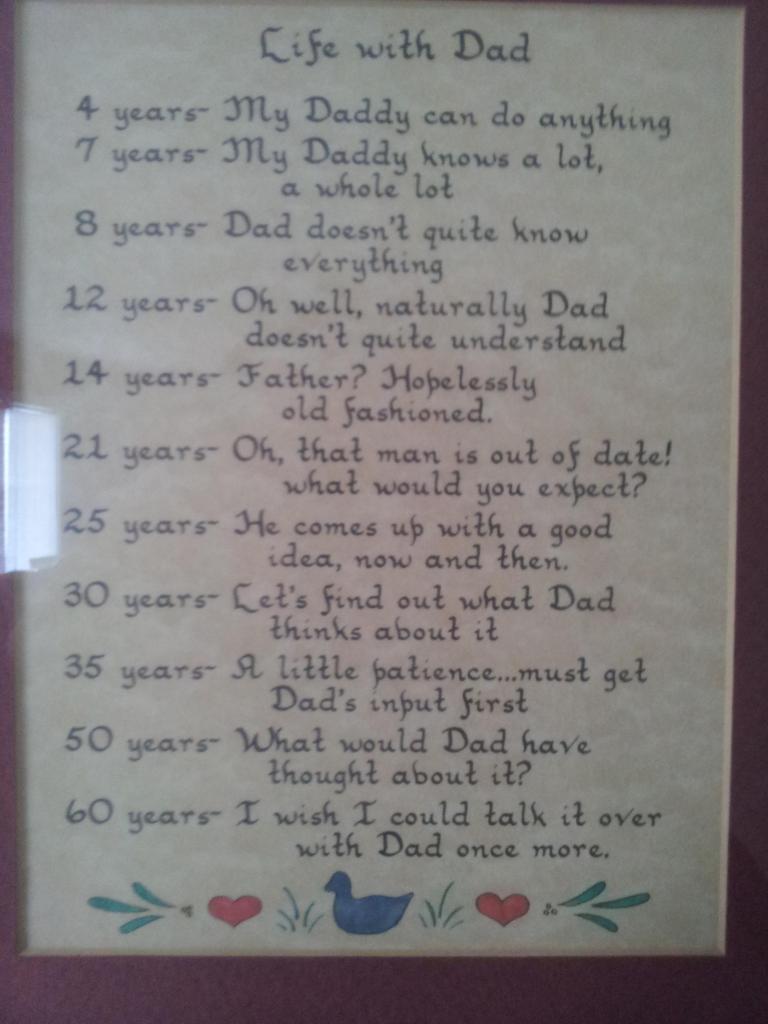 Life with Dad
4 years- My Daddy can do anything
7 years- My Daddy knows a lot,
a whole lot
8 years- Dad doesn't quite know
everything
12 years- Oh well, naturally Dad
doesn't quite understand
14 years- Father? Hopelessly
old fashioned.
21 years- Oh, that man is out of date!
what would you expect?
25 years- He comes up with a good
idea, now and then.
30 years- Let's find out what Dad
thinks about it
35 years- A little patience...must get
Dad's input first
50 years- What would Dad have
thought about it?
60 years- I wish I could talk it over
with Dad once more.